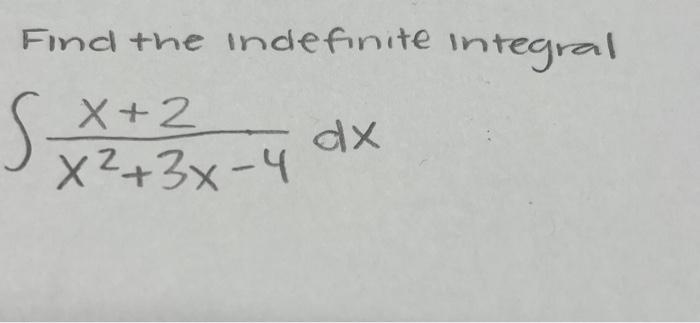 Find the indefinite integral
∫ (x+2)/(x²+3x-4) dx